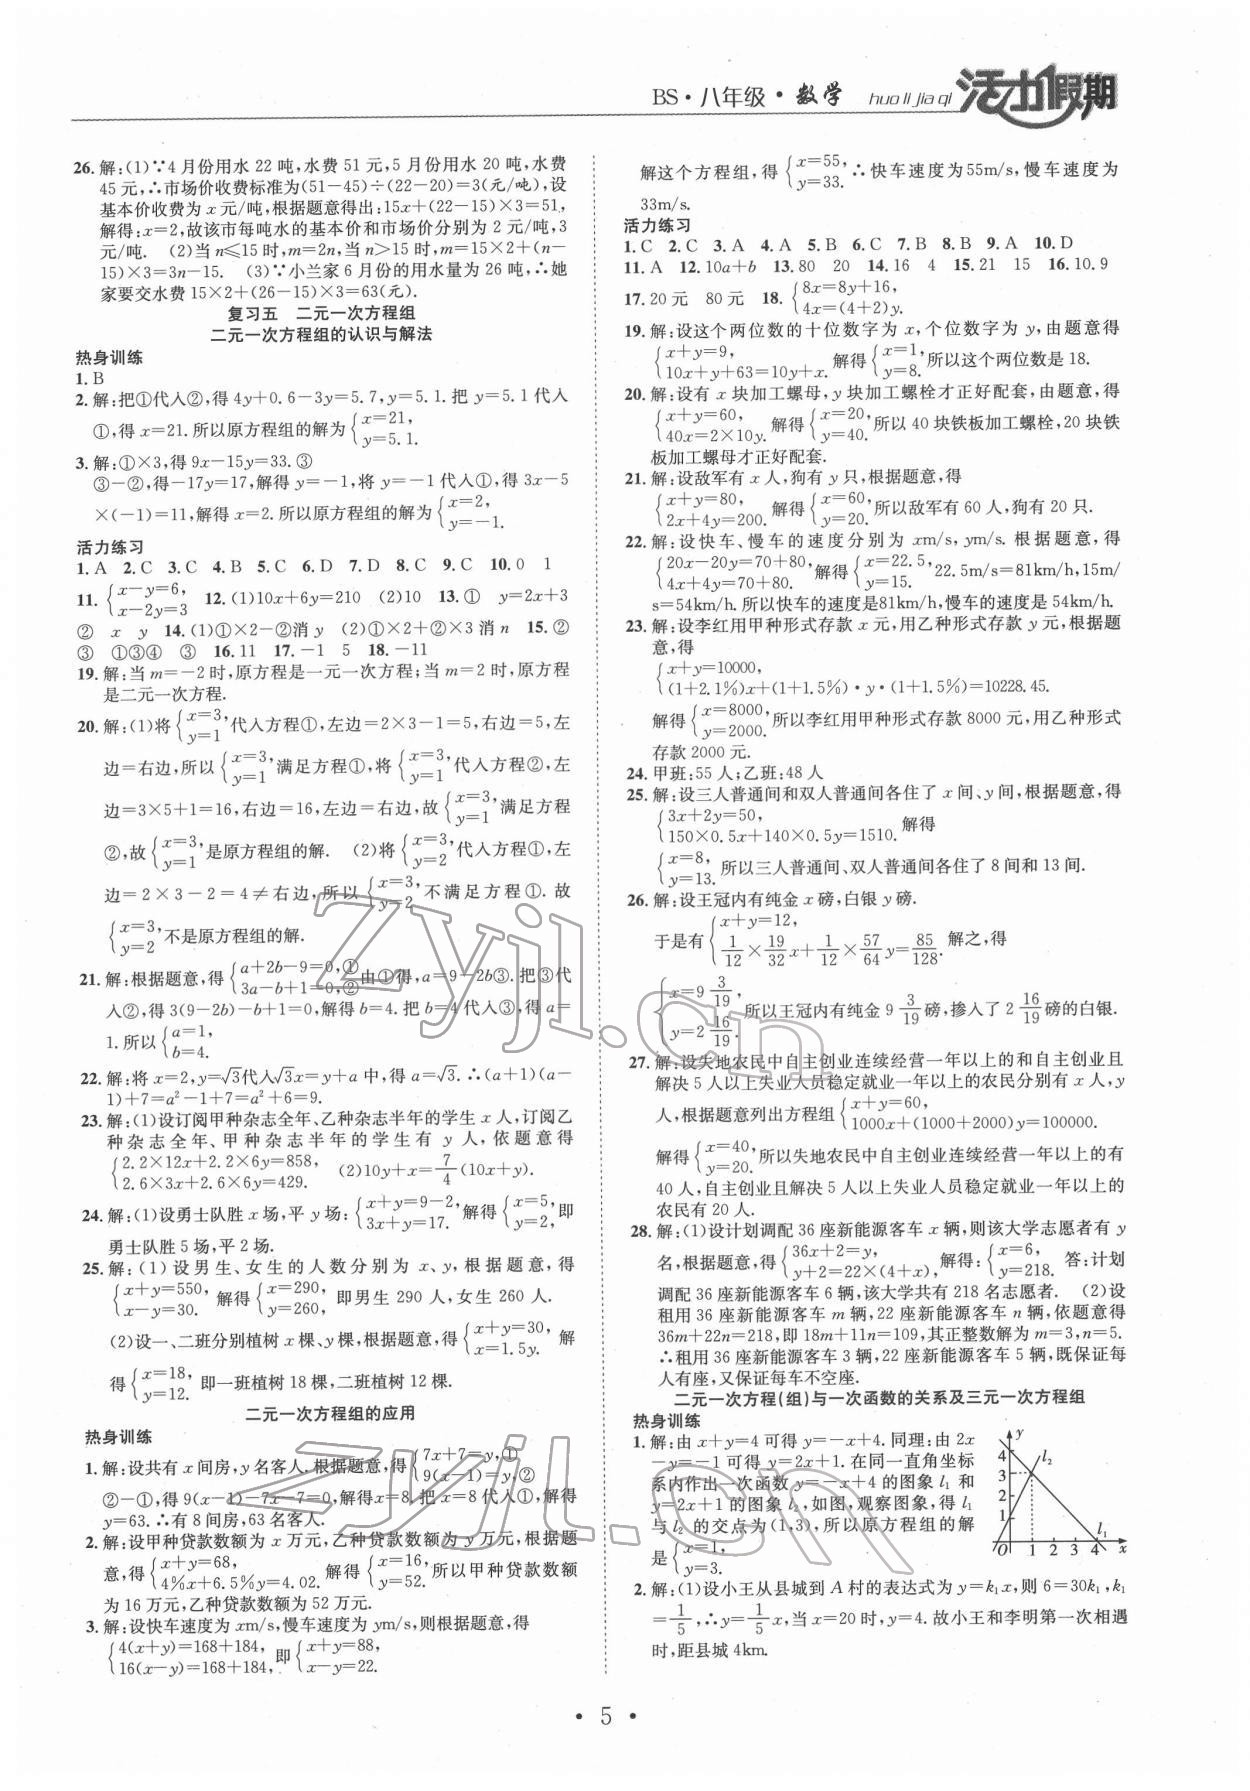 BS·八年级·数学 huo li jia qi 活力假期
26.解:(1)∵4月份用水22吨,水费51元,5月份用水20吨,水费
45元,∴市场价收费标准为(51-45)÷(22-20)=3(元/吨),设
基本价收费为x元/吨,根据题意得出:15x+(22-15)×3=51,
解得:x=2,故该市每吨水的基本价和市场价分别为2元/吨,3
元/吨. (2)当n≤15时,m=2n,当n>15时,m=15×2+(n-
15)×3=3n-15. (3)∵小兰家6月份的用水量为26吨,∴她
家要交水费15×2+(26-15)×3=63(元).
复习五 二元一次方程组
二元一次方程组的认识与解法
热身训练
1.B
2.解:把①代入②,得4y+0.6-3y=5.7,y=5.1.把y=5.1代入
①,得x=21.所以原方程组的解为{x=21, y=5.1.
3.解:①×3,得9x-15y=33.③
③-②,得-17y=17,解得y=-1,将y=-1代入①,得3x-5
×(-1)=11,解得x=2.所以原方程组的解为{x=2, y=-1.
活力练习
1.A 2.C 3.C 4.B 5.C 6.D 7.D 8.C 9.C 10.0 1
11.{x-y=6, x-2y=3 12.(1)10x+6y=210 (2)10 13.① y=2x+3
② x y 14.(1)①×2-②消y (2)①×2+②×3消n 15.②
③ ①③④ ③ 16.11 17.-1 5 18.-11
19.解:当m=-2时,原方程是一元一次方程;当m=2时,原方程
是二元一次方程.
20.解:(1)将{x=3, y=1代入方程①,左边=2×3-1=5,右边=5,左
边=右边,所以{x=3, y=1满足方程①,将{x=3, y=1代入方程②,左
边=3×5+1=16,右边=16,左边=右边,故{x=3, y=1满足方程
②,故{x=3, y=1是原方程组的解. (2)将{x=3, y=2代入方程①,左
边=2×3-2=4≠右边,所以{x=3, y=2不满足方程①.故
{x=3, y=2不是原方程组的解.
21.解:根据题意,得{a+2b-9=0,① 3a-b+1=0,②由①得,a=9-2b③.把③代
入②,得3(9-2b)-b+1=0,解得b=4.把b=4代入③,得a=
1.所以{a=1, b=4.
22.解:将x=2,y=√3代入√3x=y+a中,得a=√3.∴(a+1)(a-
1)+7=a²-1+7=a²+6=9.
23.解:(1)设订阅甲种杂志全年、乙种杂志半年的学生x人,订阅乙
种杂志全年、甲种杂志半年的学生有y人,依题意得
{2.2×12x+2.2×6y=858, 2.6×3x+2.6×6y=429. (2)10y+x=7/4(10x+y).
24.解:(1)设勇士队胜x场,平y场:{x+y=9-2, 3x+y=17.解得{x=5, y=2,即
勇士队胜5场,平2场.
25.解:(1)设男生、女生的人数分别为x、y,根据题意,得
{x+y=550, x-y=30. 解得{x=290, y=260,即男生290人,女生260人.
(2)设一、二班分别植树x棵、y棵,根据题意,得{x+y=30, x=1.5y. 解
得{x=18, y=12. 即一班植树18棵,二班植树12棵.
二元一次方程组的应用
热身训练
1.解:设共有x间房,y名客人.根据题意,得{7x+7=y,① 9(x-1)=y,②
②-①,得9(x-1)-7x-7=0,解得x=8.把x=8代入①,解得
y=63.∴有8间房,63名客人.
2.解:设甲种贷款数额为x万元,乙种贷款数额为y万元,根据题
意,得{x+y=68, 4%x+6.5%y=4.02. 解得{x=16, y=52.所以甲种贷款数额
为16万元,乙种贷款数额为52万元.
3.解:设快车速度为xm/s,慢车速度为ym/s,则根据题意,得
{4(x+y)=168+184, 16(x-y)=168+184,即{x+y=88, x-y=22.
解这个方程组,得{x=55, y=33.∴快车速度为55m/s,慢车速度为
33m/s.
活力练习
1.C 2.C 3.A 4.A 5.B 6.C 7.B 8.B 9.A 10.D
11.A 12.10a+b 13.80 20 14.16 4 15.21 15 16.10.9
17.20元 80元 18.{8x=8y+16, 4x=(4+2)y.
19.解:设这个两位数的十位数字为x,个位数字为y,由题意得
{x+y=9, 10x+y+63=10y+x. 解得{x=1, y=8.所以这个两位数是18.
20.解:设有x块加工螺母,y块加工螺栓才正好配套,由题意,得
{x+y=60, 40x=2×10y. 解得{x=20, y=40.所以40块铁板加工螺栓,20块铁
板加工螺母才正好配套.
21.解:设敌军有x人,狗有y只,根据题意,得
{x+y=80, 2x+4y=200. 解得{x=60, y=20.所以敌军有60人,狗有20只.
22.解:设快车、慢车的速度分别为xm/s,ym/s.根据题意,得
{20x-20y=70+80, 4x+4y=70+80. 解得{x=22.5, y=15. 22.5m/s=81km/h,15m/
s=54km/h.所以快车的速度是81km/h,慢车的速度是54km/h.
23.解:设李红用甲种形式存款x元,用乙种形式存款y元,根据题
意,得
{x+y=10000, (1+2.1%)x+(1+1.5%)·y·(1+1.5%)=10228.45.
解得{x=8000, y=2000.所以李红用甲种形式存款8000元,用乙种形式
存款2000元.
24.甲班:55人;乙班:48人
25.解:设三人普通间和双人普通间各住了x间、y间,根据题意,得
{3x+2y=50, 150×0.5x+140×0.5y=1510. 解得
{x=8, y=13. 所以三人普通间、双人普通间各住了8间和13间.
26.解:设王冠内有纯金x磅,白银y磅.
于是有{x+y=12, 1/12×19/32x+1/12×57/64y=85/128. 解之,得
{x=9 3/19, y=2 16/19.所以王冠内有纯金9 3/19磅,掺入了2 16/19磅的白银.
27.解:设失地农民中自主创业连续经营一年以上的和自主创业且
解决5人以上失业人员稳定就业一年以上的农民分别有x人,y
人,根据题意列出方程组{x+y=60, 1000x+(1000+2000)y=100000.
解得{x=40, y=20.所以失地农民中自主创业连续经营一年以上的有
40人,自主创业且解决5人以上失业人员稳定就业一年以上的
农民有20人.
28.解:(1)设计划调配36座新能源客车x辆,则该大学志愿者有y
名,根据题意,得{36x+2=y, y+2=22×(4+x), 解得:{x=6, y=218. 答:计划
调配36座新能源客车6辆,该大学共有218名志愿者. (2)设
租用36座新能源客车m辆,22座新能源客车n辆,依题意得
36m+22n=218,即18m+11n=109,其正整数解为m=3,n=5.
∴租用36座新能源客车3辆,22座新能源客车5辆,既保证每
人有座,又保证每车不空座.
二元一次方程(组)与一次函数的关系及三元一次方程组
热身训练
1.解:由x+y=4可得y=-x+4.同理:由2x
-y=-1可得y=2x+1.在同一直角坐标
系内作出一次函数y=-x+4的图象l₁和
y=2x+1的图象l₂,如图,观察图象,得l₁
与l₂的交点为(1,3),所以原方程组的解
是{x=1, y=3.
y l₂ 4 3 2 1 l₁ O 1 2 3 4 x
2.解:(1)设小王从县城到A村的表达式为y=k₁x,则6=30k₁,k₁
=1/5,∴y=1/5x,当x=20时,y=4.故小王和李明第一次相遇
时,距县城4km.
·5·
zyjl.cn
zyjl.cn